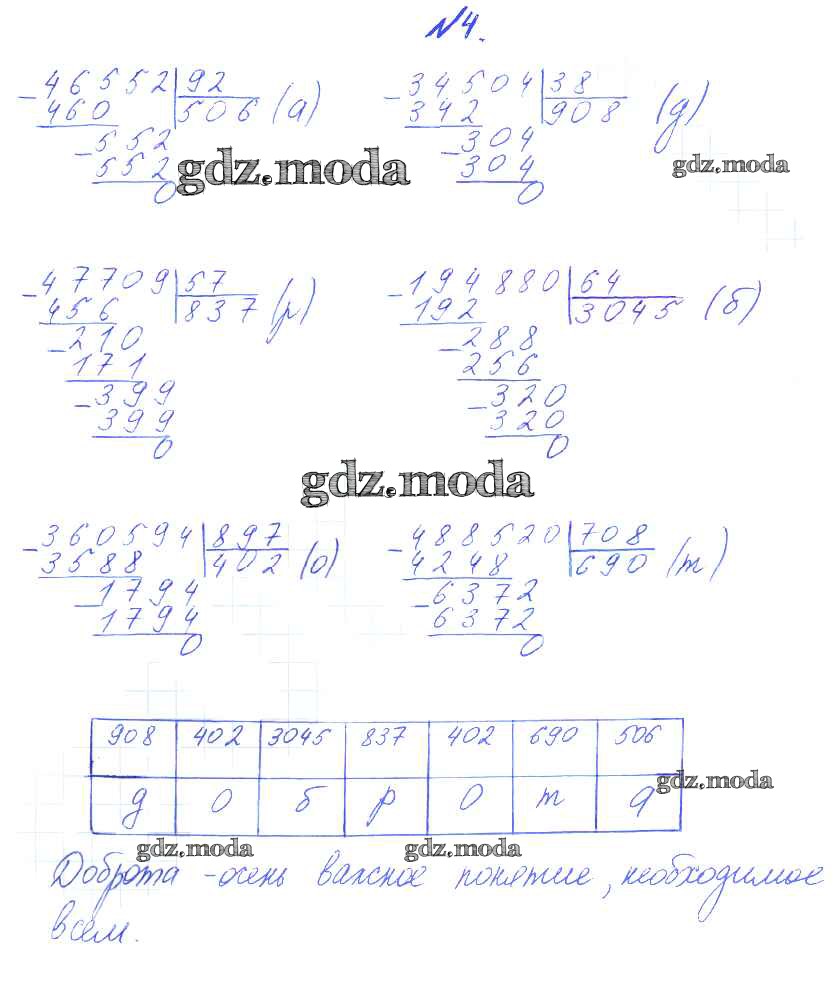 №4.
46552 | 92
460 | 506 (а)
552
552
0
34504 | 38
342 | 908 (д)
304
304
0
gdz.moda
gdz.moda
47709 | 57
456 | 837 (р)
210
171
399
399
0
194880 | 64
192 | 3045 (б)
288
256
320
320
0
gdz.moda
360594 | 897
3588 | 402 (о)
1794
1794
0
488520 | 708
4248 | 690 (т)
6372
6372
0
908 402 3045 837 402 690 506
д о б р о т а
gdz.moda
gdz.moda
gdz.moda
Доброта - очень важное понятие, необходимое
всем.